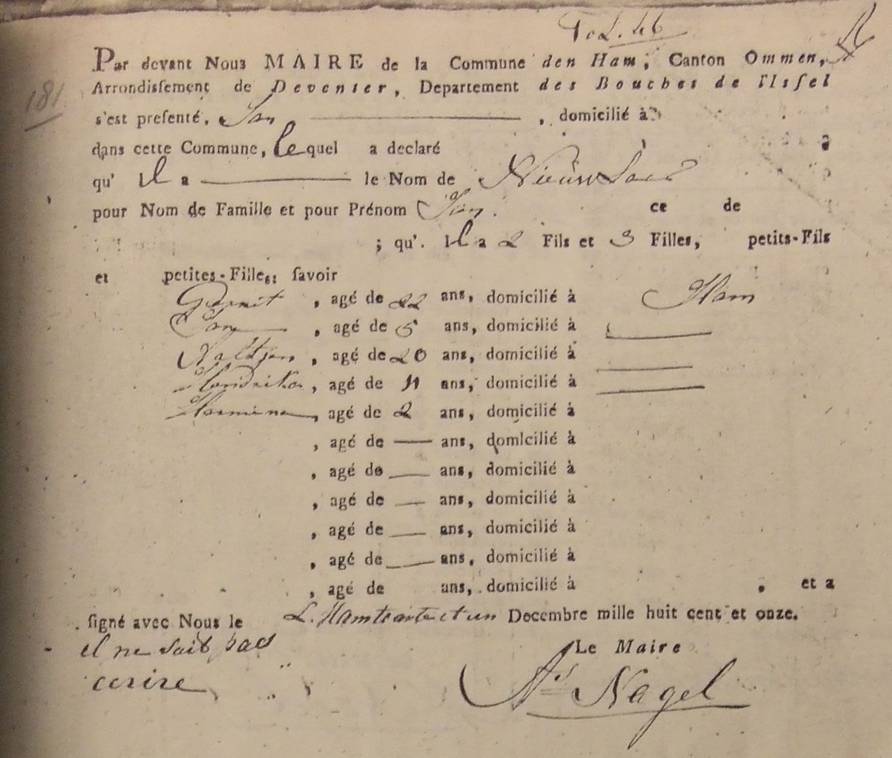 Fol. 46
181
Par devant Nous MAIRE de la Commune den Ham, Canton Ommen,
Arrondiſſement de Deventer, Departement des Bouches de l'Iſſel
s'est preſenté, Jan , domicilié à
dans cette Commune, lequel a declaré
qu' il a le Nom de
pour Nom de Famille et pour Prénom Jan. ce de
; qu'. il a 2 Fils et 3 Filles, petits-Fils
et petites-Filles: ſavoir
Gerrit , agé de 22 ans, domicilié à Ham
Jan , agé de 5 ans, domicilié à
Aaltjen , agé de 20 ans, domicilié à
Hendrika , agé de 11 ans, domicilié à
Harmina , agé de 2 ans, domicilié à
, agé de — ans, domicilié à
, agé de — ans, domicilié à
, agé de — ans, domicilié à
, agé de — ans, domicilié à
, agé de — ans, domicilié à
, agé de ans, domicilié à , et a
ſigné avec Nous le Ham trente et un Decembre mille huit cent et onze.
il ne sait pas Le Maire
ecrire Nagel